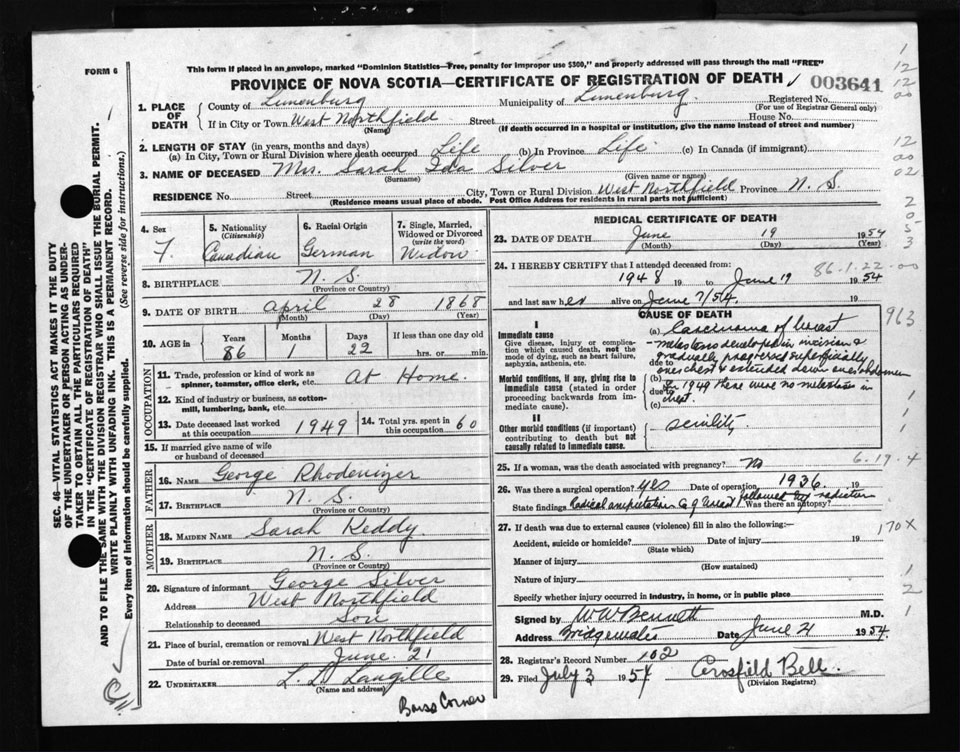 FORM 6
This form if placed in an envelope, marked "Dominion Statistics—Free, penalty for improper use $300," and properly addressed will pass through the mail "FREE"
PROVINCE OF NOVA SCOTIA—CERTIFICATE OF REGISTRATION OF DEATH
003641
1. PLACE OF DEATH
County of Lunenburg Municipality of Lunenburg. Registered No.
(For use of Registrar General only)
If in City or Town West Northfield Street House No.
(Name) (If death occurred in a hospital or institution, give the name instead of street and number)
2. LENGTH OF STAY (in years, months and days)
(a) In City, Town or Rural Division where death occurred Life (b) In Province Life. (c) In Canada (if immigrant)
3. NAME OF DECEASED Mrs. Sarah Ida Silver
(Surname) (Given name or names)
RESIDENCE No. Street City, Town or Rural Division West Northfield Province N. S.
(Residence means usual place of abode. Post Office Address for residents in rural parts not sufficient)
4. Sex F.
5. Nationality (Citizenship) Canadian
6. Racial Origin German
7. Single, Married, Widowed or Divorced (write the word) Widow
8. BIRTHPLACE N. S.
(Province or Country)
9. DATE OF BIRTH April 28 1868
(Month) (Day) (Year)
10. AGE in Years 86 Months 1 Days 22 If less than one day old hrs. or min.
OCCUPATION
11. Trade, profession or kind of work as spinner, teamster, office clerk, etc. At Home.
12. Kind of industry or business, as cotton-mill, lumbering, bank, etc.
13. Date deceased last worked at this occupation 1949
14. Total yrs. spent in this occupation 60
15. If married give name of wife or husband of deceased
FATHER
16. Name George Rhodenizer
17. Birthplace N. S.
(Province or Country)
MOTHER
18. Maiden Name Sarah Keddy
19. Birthplace N. S.
(Province or Country)
20. Signature of informant George Silver
Address West Northfield
Relationship to deceased Son
21. Place of burial, cremation or removal West Northfield
Date of burial or removal June 21
22. Undertaker L. D. Langille
(Name and address)
Barss Corner
MEDICAL CERTIFICATE OF DEATH
23. DATE OF DEATH June 19 1954
(Month) (Day) (Year)
24. I HEREBY CERTIFY that I attended deceased from:
86-1-22-00
1948 19 to June 19 1954
and last saw her alive on June 7/54. 19
CAUSE OF DEATH
I
Immediate cause
Give disease, injury or complication which caused death, not the mode of dying, such as heart failure, asphyxia, asthenia, etc.
(a) Carcinoma of breast
- metastases developed in incision &
gradually progressed superficially
due to on chest & extended down over abdomen
Morbid conditions, if any, giving rise to immediate cause (stated in order proceeding backwards from immediate cause).
(b) In 1949 there were no metastases in
due to
(c) chest.
II
Other morbid conditions (if important) contributing to death but not causally related to immediate cause.
senility.
963
25. If a woman, was the death associated with pregnancy? No
6-19-4
26. Was there a surgical operation? yes Date of operation 1936 19
State findings Radical amputation Ca of breast followed by radiation Was there an autopsy?
27. If death was due to external causes (violence) fill in also the following:—
170X
Accident, suicide or homicide? Date of injury 19
(State which)
Manner of injury
(How sustained)
Nature of injury
Specify whether injury occurred in industry, in home, or in public place
Signed by W W Bennett M.D.
Address Bridgewater Date June 21 1954.
28. Registrar's Record Number 102
29. Filed July 3 1954 Crosfild Bell.
(Division Registrar)
SEC. 46—VITAL STATISTICS ACT MAKES IT THE DUTY
OF THE UNDERTAKER OR PERSON ACTING AS UNDER-
TAKER TO OBTAIN ALL THE PARTICULARS REQUIRED
IN THE "CERTIFICATE OF REGISTRATION OF DEATH"
AND TO FILE THE SAME WITH THE DIVISION REGISTRAR WHO SHALL ISSUE THE BURIAL PERMIT.
WRITE PLAINLY WITH UNFADING INK. THIS IS A PERMANENT RECORD.
Every item of information should be carefully supplied. (See reverse side for instructions.)
1
12
12
00
12
00
02
2
0
5
3
1
1
1
1
2
1